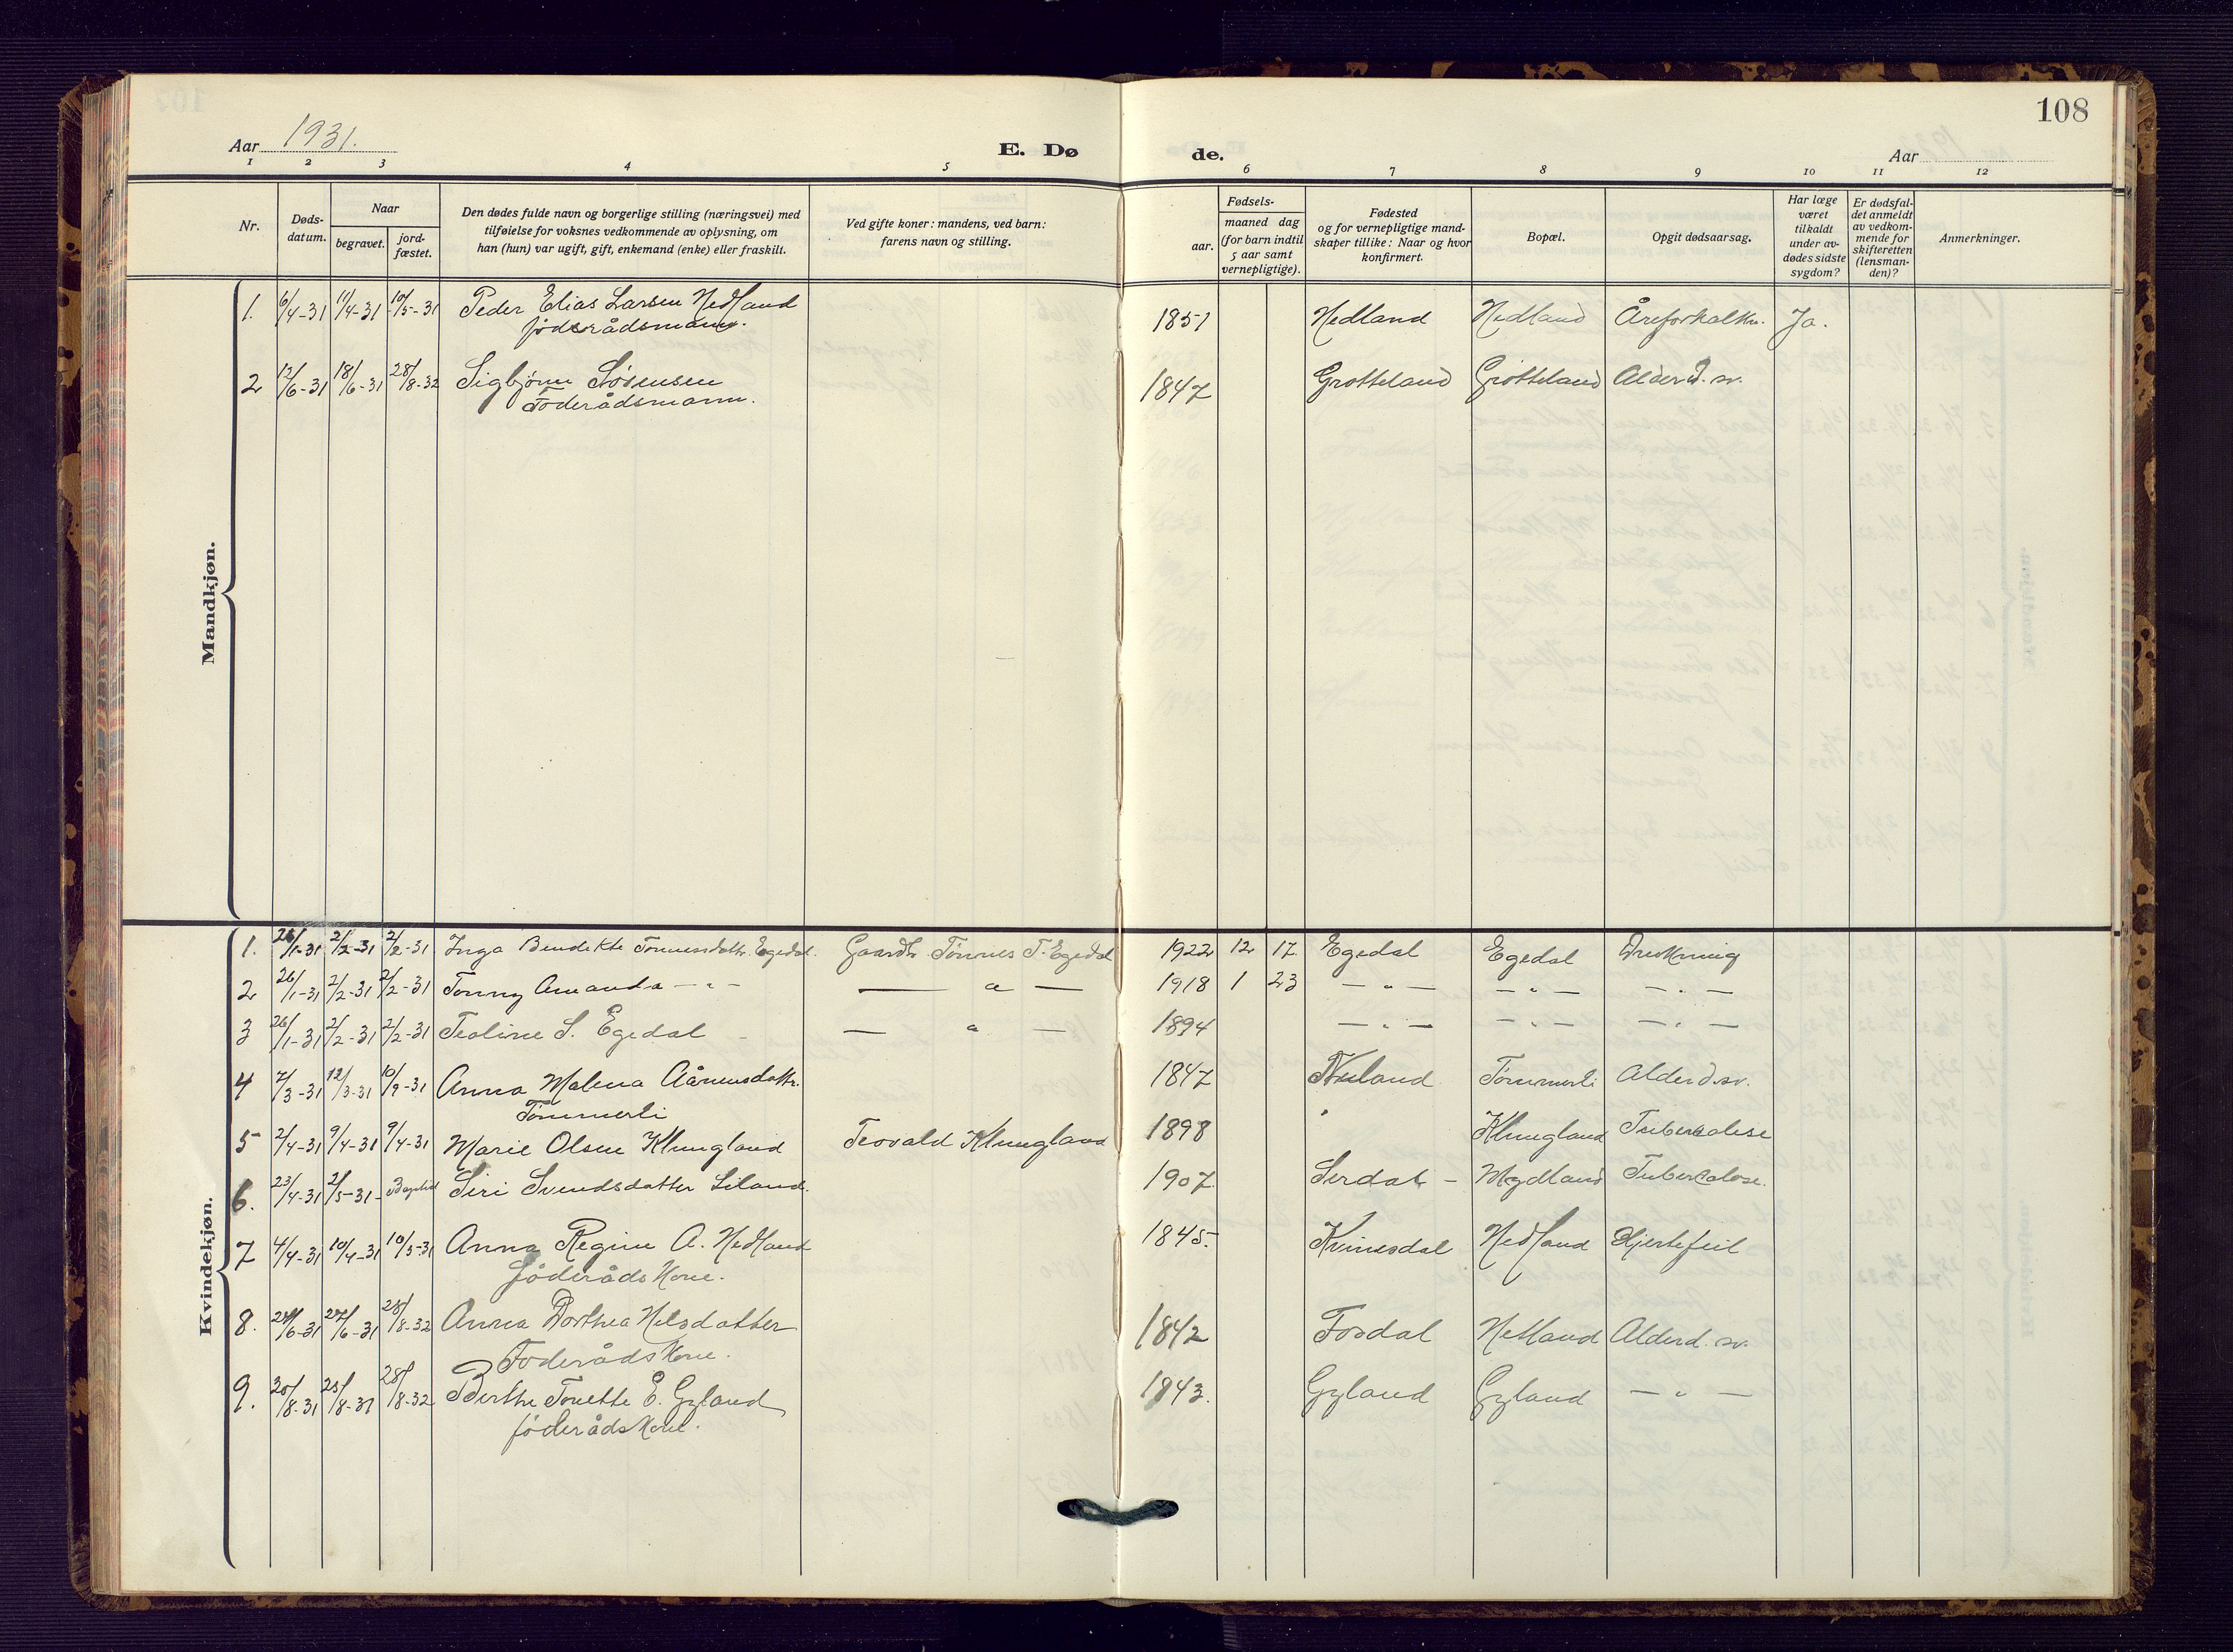 108
Aar 1931.
E. Dø
de.
Aar
1 2 3 4 5 6 7 8 9 10 11 12
Nr.
Døds-
datum.
Naar
begravet.
jord-
fæstet.
Den dødes fulde navn og borgerlige stilling (næringsvei) med
tilføielse for voksnes vedkommende av oplysning, om
han (hun) var ugift, gift, enkemand (enke) eller fraskilt.
Ved gifte koner: mandens, ved barn:
farens navn og stilling.
Fødsels-
aar.
maaned dag
(for barn indtil
5 aar samt
vernepligtige).
Fødested
og for vernepligtige mand-
skaper tillike: Naar og hvor
konfirmert.
Bopæl.
Opgit dødsaarsag.
Har læge
været
tilkaldt
under av-
dødes sidste
sygdom?
Er dødsfal-
det anmeldt
av vedkom-
mende for
skifteretten
(lensman-
den)?
Anmerkninger.
Mandkjøn.
1. 6/4-31 11/4-31 10/5-31 Peder Elias Larsen Nedland 1851 Nedland Nedland Åreforkalkn. Ja.
föderådsmann.
2 12/6-31 18/6-31 28/8-32 Sigbjörn Sörensen 1847 Grotteland Grotteland Alderd.sv.
Föderådsmann.
Kvindekjøn.
1. 26/1-31 2/2-31 2/2-31 Inga Bendikte Tönnesdatr. Egedal. Gaardbr. Tönnes T. Egedal 1922 12 17. Egedal Egedal Drukning
2 26/1-31 2/2-31 2/2-31 Tonny Amanda — " — — " — 1918 1 23 — " — — " — — " —
3 26/1-31 2/2-31 2/2-31 Teoline S. Egedal — " — 1894 — " — — " — — " —
4 7/3-31 12/3-31 10/9-31 Anna Malena Aånensdattr. 1847 Tömmerli Alderd.sv.
Tömmerli
5 2/4-31 9/4-31 9/4-31 Marie Olsen Klungland Teovald Klungland 1898 Klungland Tuberculose
6. 23/4-31 2/5-31 Siri Svendsdatter Liland. 1907 Serdal – Mydland Tuberculose.
7 4/4-31 10/4-31 10/5-31 Anna Regine A. Nedland 1845. Kvinesdal Nedland Hjertefeil
föderådskone.
8. 27/6-31 28/8-32 Anna Dorthea Nelsdatter 1842 Fosdal Netland Alderd.sv.
Föderådskone.
9. 20/8-31 25/8-31 28/8-32 Berthe Tonette E. Gyland 1843. Gyland Gyland — " —
föderådskone.